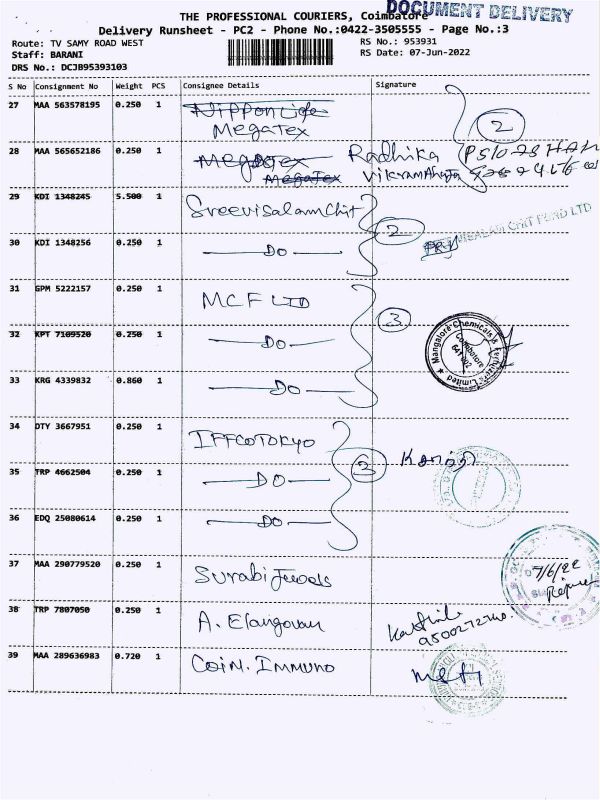 THE PROFESSIONAL COURIERS, Coimbatore
DOCUMENT DELIVERY
Delivery Runsheet - PC2 - Phone No.:0422-3505555 - Page No.:3
Route: TV SAMY ROAD WEST
RS No.: 953931
Staff: BARANI
RS Date: 07-Jun-2022
DRS No.: DCJB95393103
S No Consignment No Weight PCS Consignee Details Signature
27 MAA 563578195 0.250 1 Nippon Life
MegaTex
2
28 MAA 565652186 0.250 1 Megatex Radhika
MegaTex Vikram Ahuja
29 KDI 1348245 5.500 1 Sreevisalam Chit
2
CHIT FUND LTD
30 KDI 1348256 0.250 1 — Do —
31 GPM 5222157 0.250 1 MCF LTD
3
Mangalore Chemicals & Fertilizers Limited
Coimbatore
641 002
32 KPT 7109520 0.250 1 — Do —
33 KRG 4339832 0.860 1 — Do —
34 DTY 3667951 0.250 1 IFFCO TOKYO
3
35 TRP 4662504 0.250 1 — Do —
36 EDQ 25080614 0.250 1 — Do —
37 MAA 290779520 0.250 1 Surabi Jewels
7/6/22
38 TRP 7807050 0.250 1 A. Elangovan
39 MAA 289636983 0.720 1 Coin. Immuno